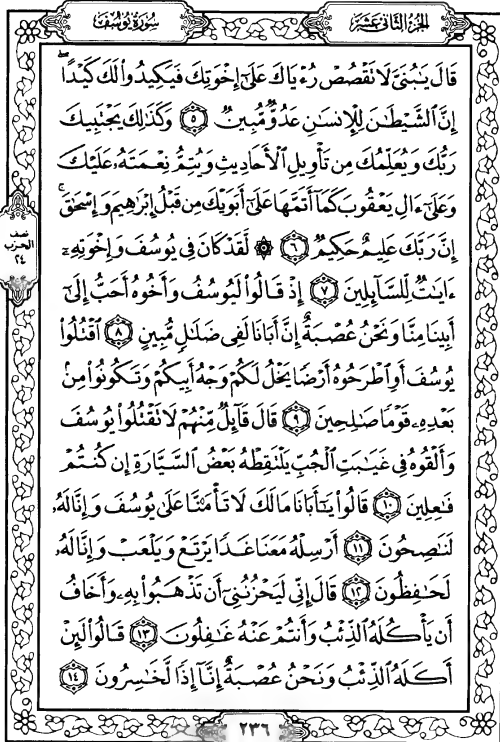 سُورَةُ يُوسُفَ
الجُزْءُ الثَّانِي عَشَرَ
قَالَ يَٰبُنَيَّ لَا تَقْصُصْ رُءْيَاكَ عَلَىٰٓ إِخْوَتِكَ فَيَكِيدُوا۟ لَكَ كَيْدًا ۖ
إِنَّ ٱلشَّيْطَٰنَ لِلْإِنسَٰنِ عَدُوٌّ مُّبِينٌ ٥ وَكَذَٰلِكَ يَجْتَبِيكَ
رَبُّكَ وَيُعَلِّمُكَ مِن تَأْوِيلِ ٱلْأَحَادِيثِ وَيُتِمُّ نِعْمَتَهُۥ عَلَيْكَ
وَعَلَىٰٓ ءَالِ يَعْقُوبَ كَمَآ أَتَمَّهَا عَلَىٰٓ أَبَوَيْكَ مِن قَبْلُ إِبْرَٰهِيمَ وَإِسْحَٰقَ ۚ
إِنَّ رَبَّكَ عَلِيمٌ حَكِيمٌ ٦ ۞ لَّقَدْ كَانَ فِى يُوسُفَ وَإِخْوَتِهِۦٓ
ءَايَٰتٌ لِّلسَّآئِلِينَ ٧ إِذْ قَالُوا۟ لَيُوسُفُ وَأَخُوهُ أَحَبُّ إِلَىٰٓ
أَبِينَا مِنَّا وَنَحْنُ عُصْبَةٌ إِنَّ أَبَانَا لَفِى ضَلَٰلٍ مُّبِينٍ ٨ ٱقْتُلُوا۟
يُوسُفَ أَوِ ٱطْرَحُوهُ أَرْضًا يَخْلُ لَكُمْ وَجْهُ أَبِيكُمْ وَتَكُونُوا۟ مِنۢ
بَعْدِهِۦ قَوْمًا صَٰلِحِينَ ٩ قَالَ قَآئِلٌ مِّنْهُمْ لَا تَقْتُلُوا۟ يُوسُفَ
وَأَلْقُوهُ فِى غَيَٰبَتِ ٱلْجُبِّ يَلْتَقِطْهُ بَعْضُ ٱلسَّيَّارَةِ إِن كُنتُمْ
فَٰعِلِينَ ١٠ قَالُوا۟ يَٰٓأَبَانَا مَالَكَ لَا تَأْمَ۫نَّا عَلَىٰ يُوسُفَ وَإِنَّا لَهُۥ
لَنَٰصِحُونَ ١١ أَرْسِلْهُ مَعَنَا غَدًا يَرْتَعْ وَيَلْعَبْ وَإِنَّا لَهُۥ
لَحَٰفِظُونَ ١٢ قَالَ إِنِّى لَيَحْزُنُنِىٓ أَن تَذْهَبُوا۟ بِهِۦ وَأَخَافُ
أَن يَأْكُلَهُ ٱلذِّئْبُ وَأَنتُمْ عَنْهُ غَٰفِلُونَ ١٣ قَالُوا۟ لَئِنْ
أَكَلَهُ ٱلذِّئْبُ وَنَحْنُ عُصْبَةٌ إِنَّآ إِذًا لَّخَٰسِرُونَ ١٤
نصف
الحزب
٢٤
٢٣٦